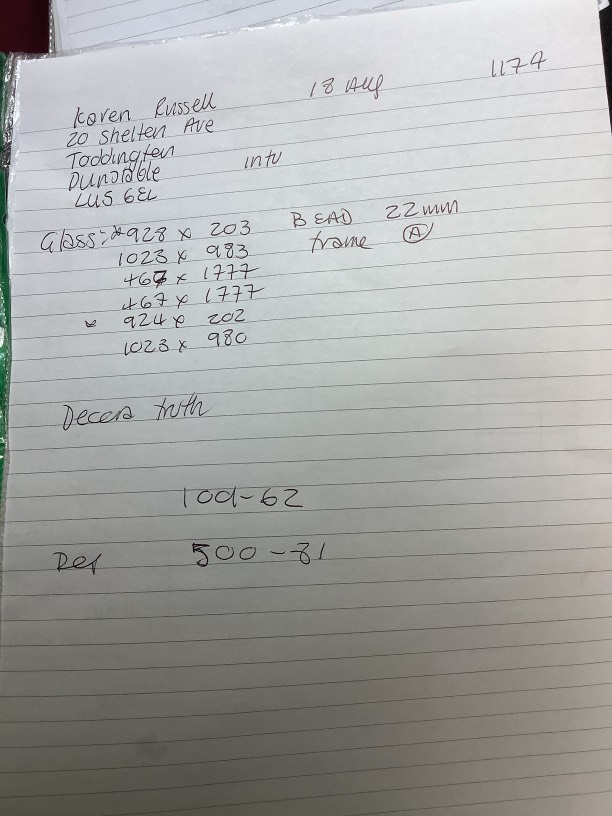 Karen Russell 18 Aug 1174
20 Shelten Ave
Toddington
Dunstable intu
LU5 6EL
Glass:- *928 x 203 BEAD 22mm
1023 x 983 frame (A)
467 x 1777
467 x 1777
* 924 x 202
1023 x 980
Decera truth
1001-62
Def 500-81